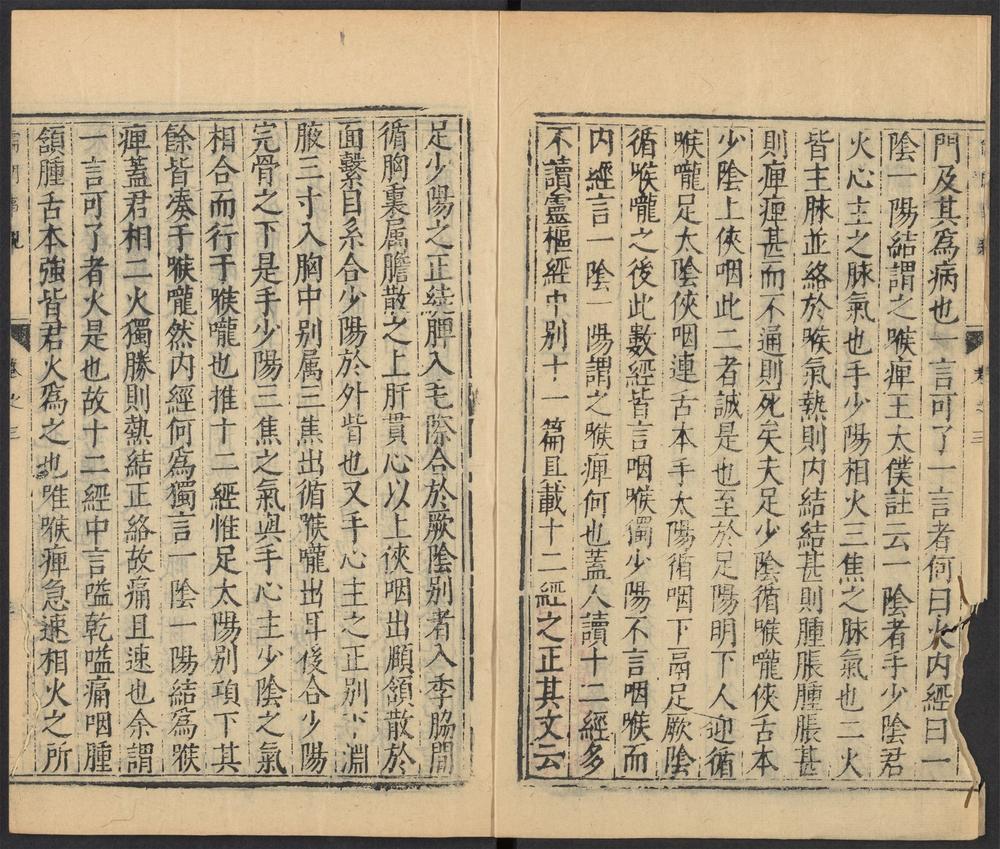 門及其爲病也一言可了一言者何曰火内經曰一
陰一陽結謂之喉痺王太僕註云一陰者手少陰君
火心主之脉氣也手少陽相火三焦之脉氣也二火
皆主脉並絡於喉氣熱則内結結甚則腫脹腫脹甚
則痺痺甚而不通則死矣夫足少陰循喉嚨俠舌本
少陰上俠咽此二者誠是也至於足陽明下人迎循
喉嚨足太陰俠咽連舌本手太陽循咽下鬲足厥陰
循喉嚨之後此數經皆言咽喉獨少陽不言咽喉而
内經言一陰一陽謂之喉痺何也蓋人讀十二經多
不讀靈樞經中别十一篇具載十二經之正其文云
足少陽之正繞髀入毛際合於厥陰别者入季脇間
循胸裏属膽散之上肝貫心以上俠咽出頥頷散於
面繫目系合少陽於外眥也又手心主之正别下淵
腋三寸入胸中别属三焦出循喉嚨出耳後合少陽
完骨之下是手少陽三焦之氣與手心主少陰之氣
相合而行于喉嚨也推十二經惟足太陽别項下其
餘皆凑于喉嚨然内經何爲獨言一陰一陽結爲喉
痺蓋君相二火獨勝則熱結正絡故痛且速也余謂
一言可了者火是也故十二經中言嗌乾嗌痛咽腫
頷腫舌本強皆君火爲之也唯喉痺急速相火之所
卷之三